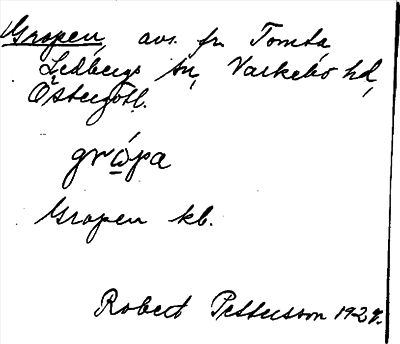 Gropen, avs. fr Tomta,
Ledbergs sn, Valkebo hd,
Östergötl.
grωpa
Gropen kb.
Robert Pettersson 1929.